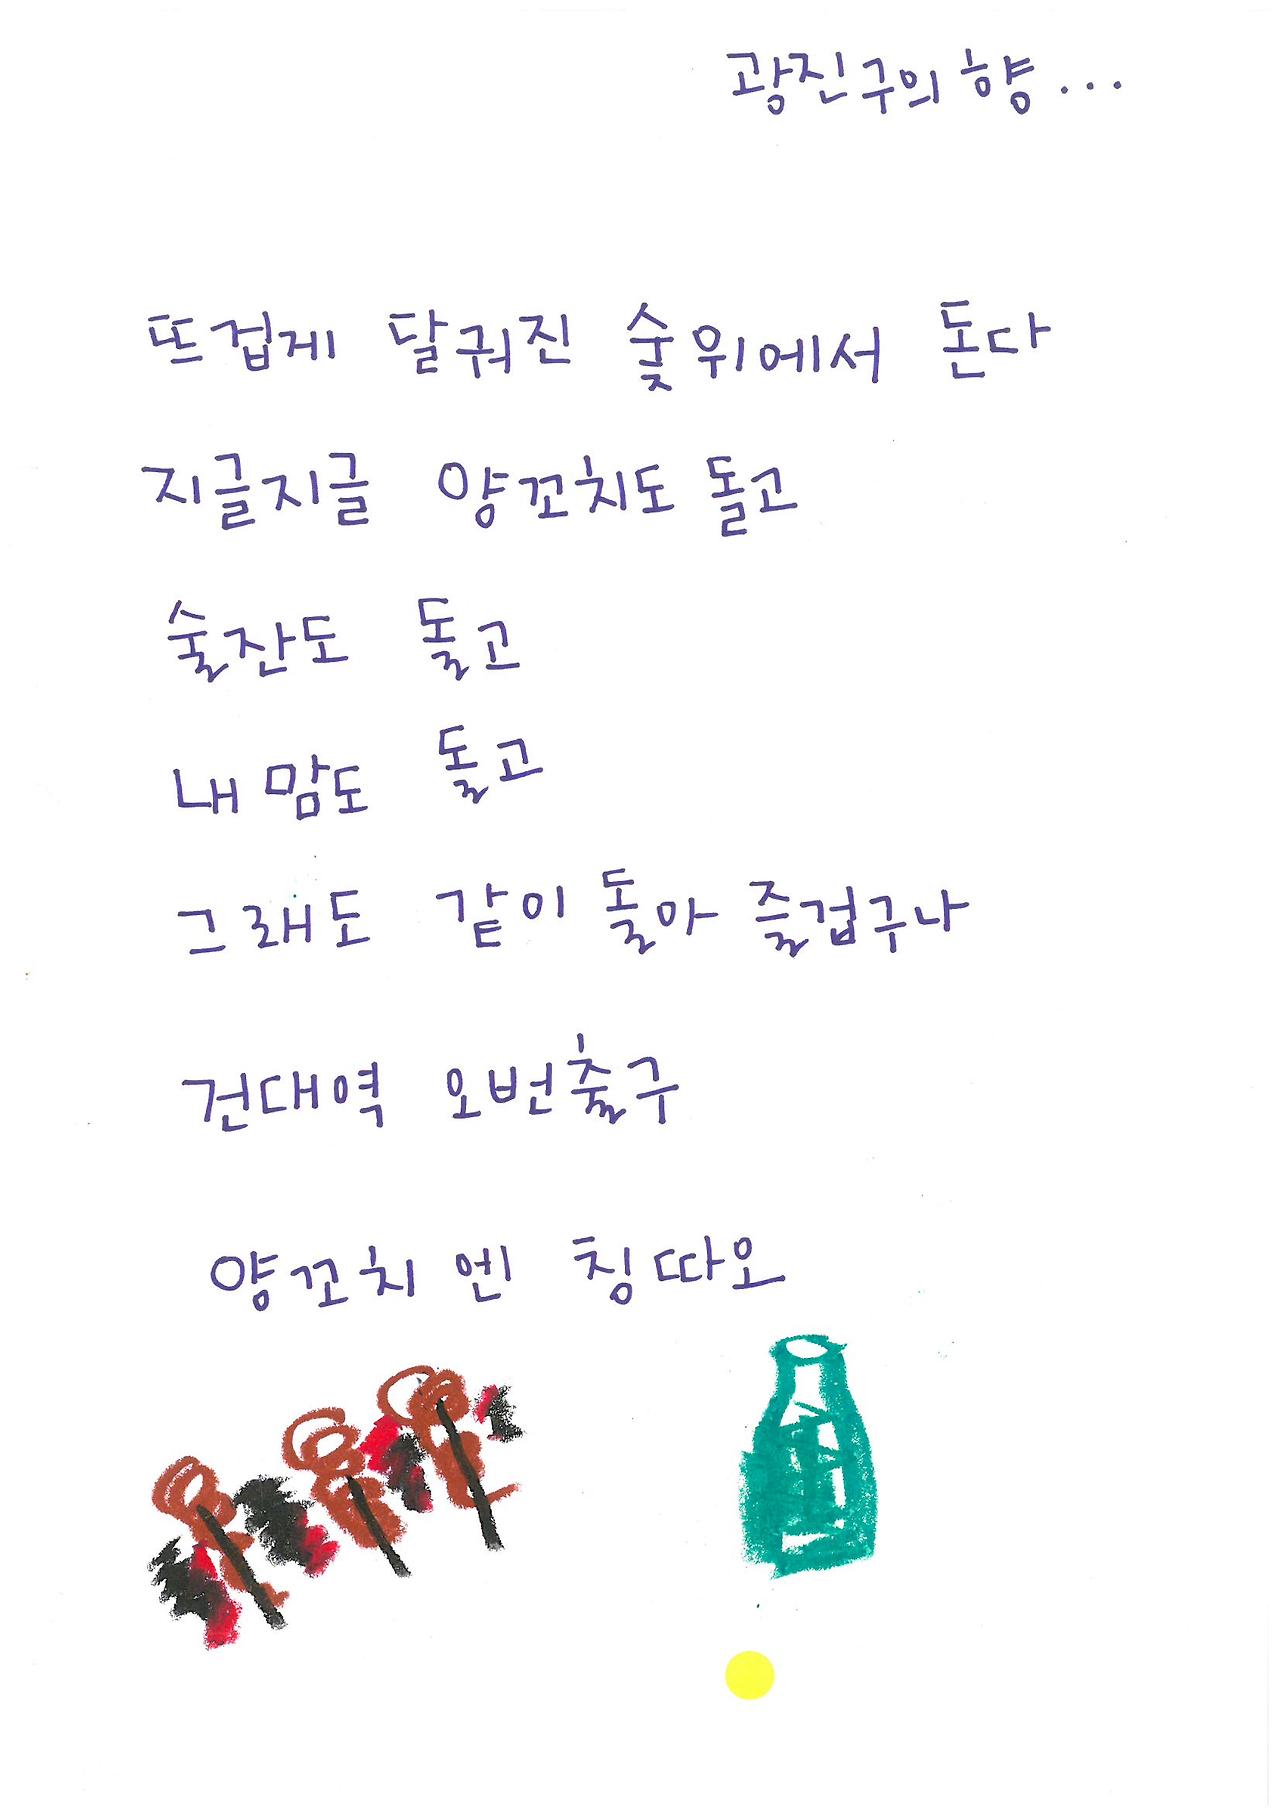 광진구의 향...
뜨겁게 달궈진 숯위에서 돈다
지글지글 양꼬치도 돌고
술잔도 돌고
내 맘도 돌고
그래도 같이 돌아 즐겁구나
건대역 오번출구
양꼬치엔 칭따오